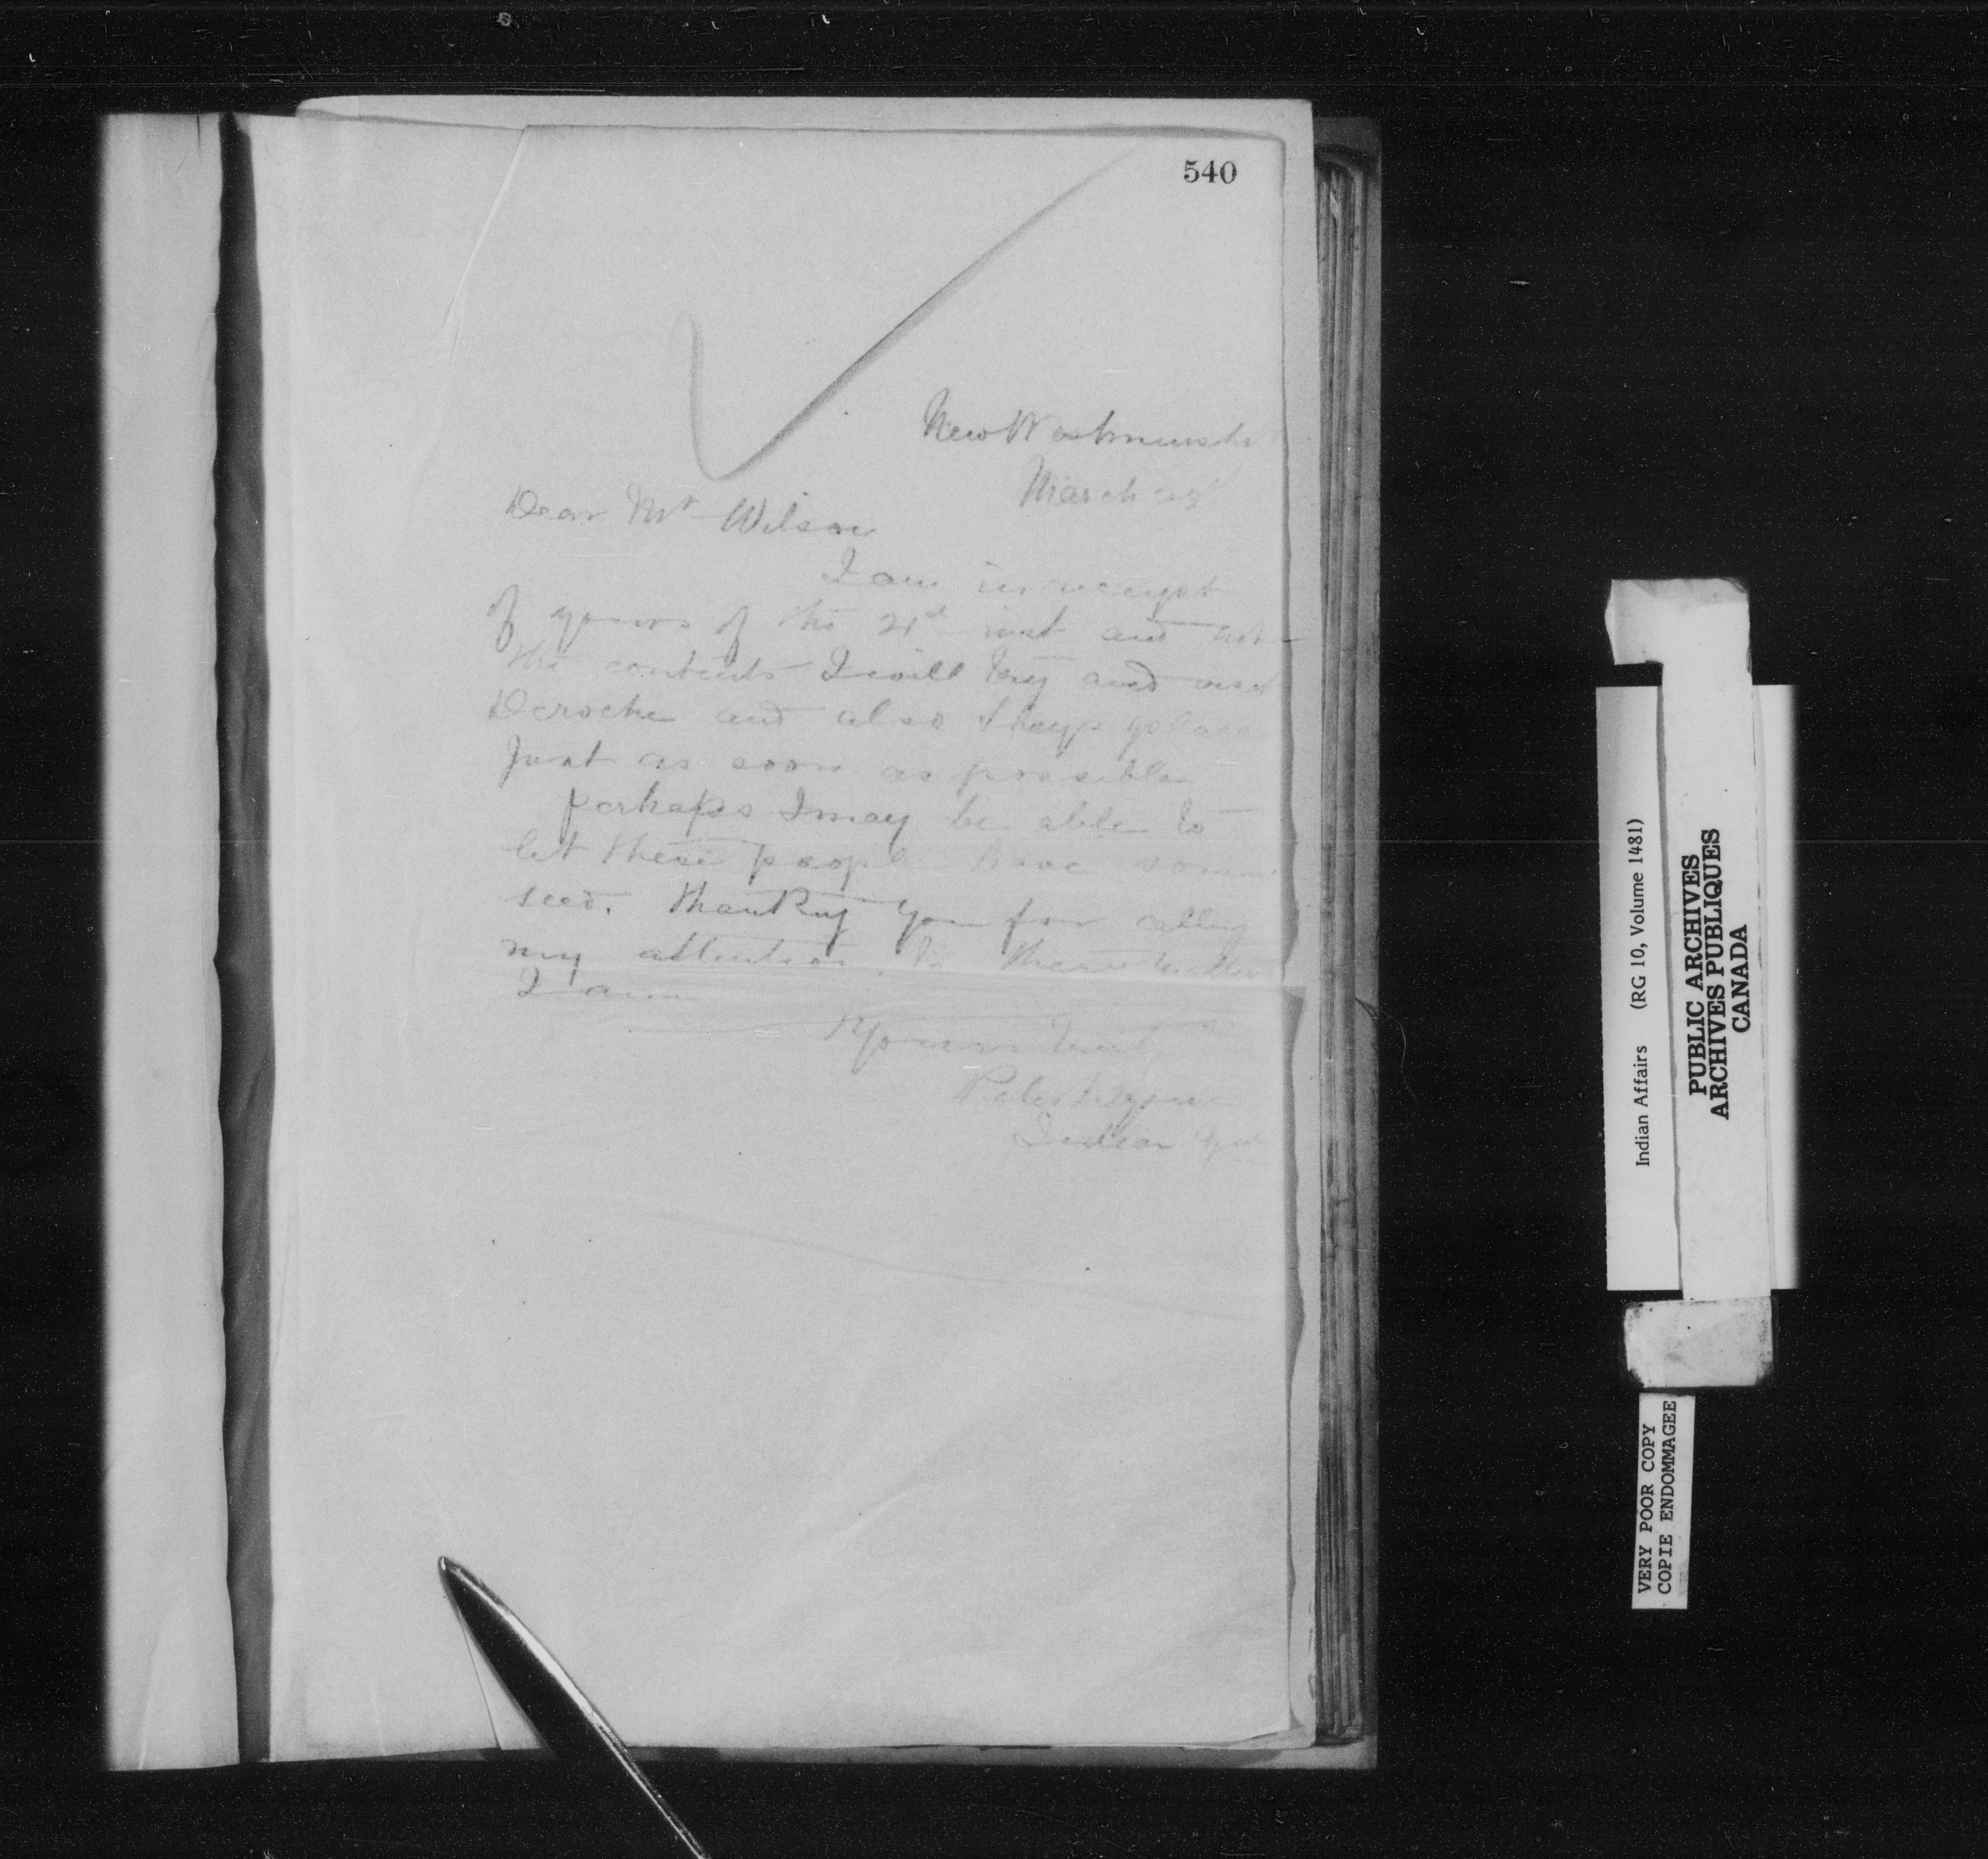 540
New Westminster
March 28
Dear Mr Wilson
I am in receipt
of yours of the 21st inst and note
the contents I will try and visit
Deroche and also Skeyps place
Just as soon as possible
perhaps I may be able to
let these people have some
seed. Thanking you for calling
my attention to these matters
I am
Yours truly
Indian Agent
Indian Affairs (RG 10, Volume 1481)
PUBLIC ARCHIVES
ARCHIVES PUBLIQUES
CANADA
VERY POOR COPY
COPIE ENDOMMAGEE